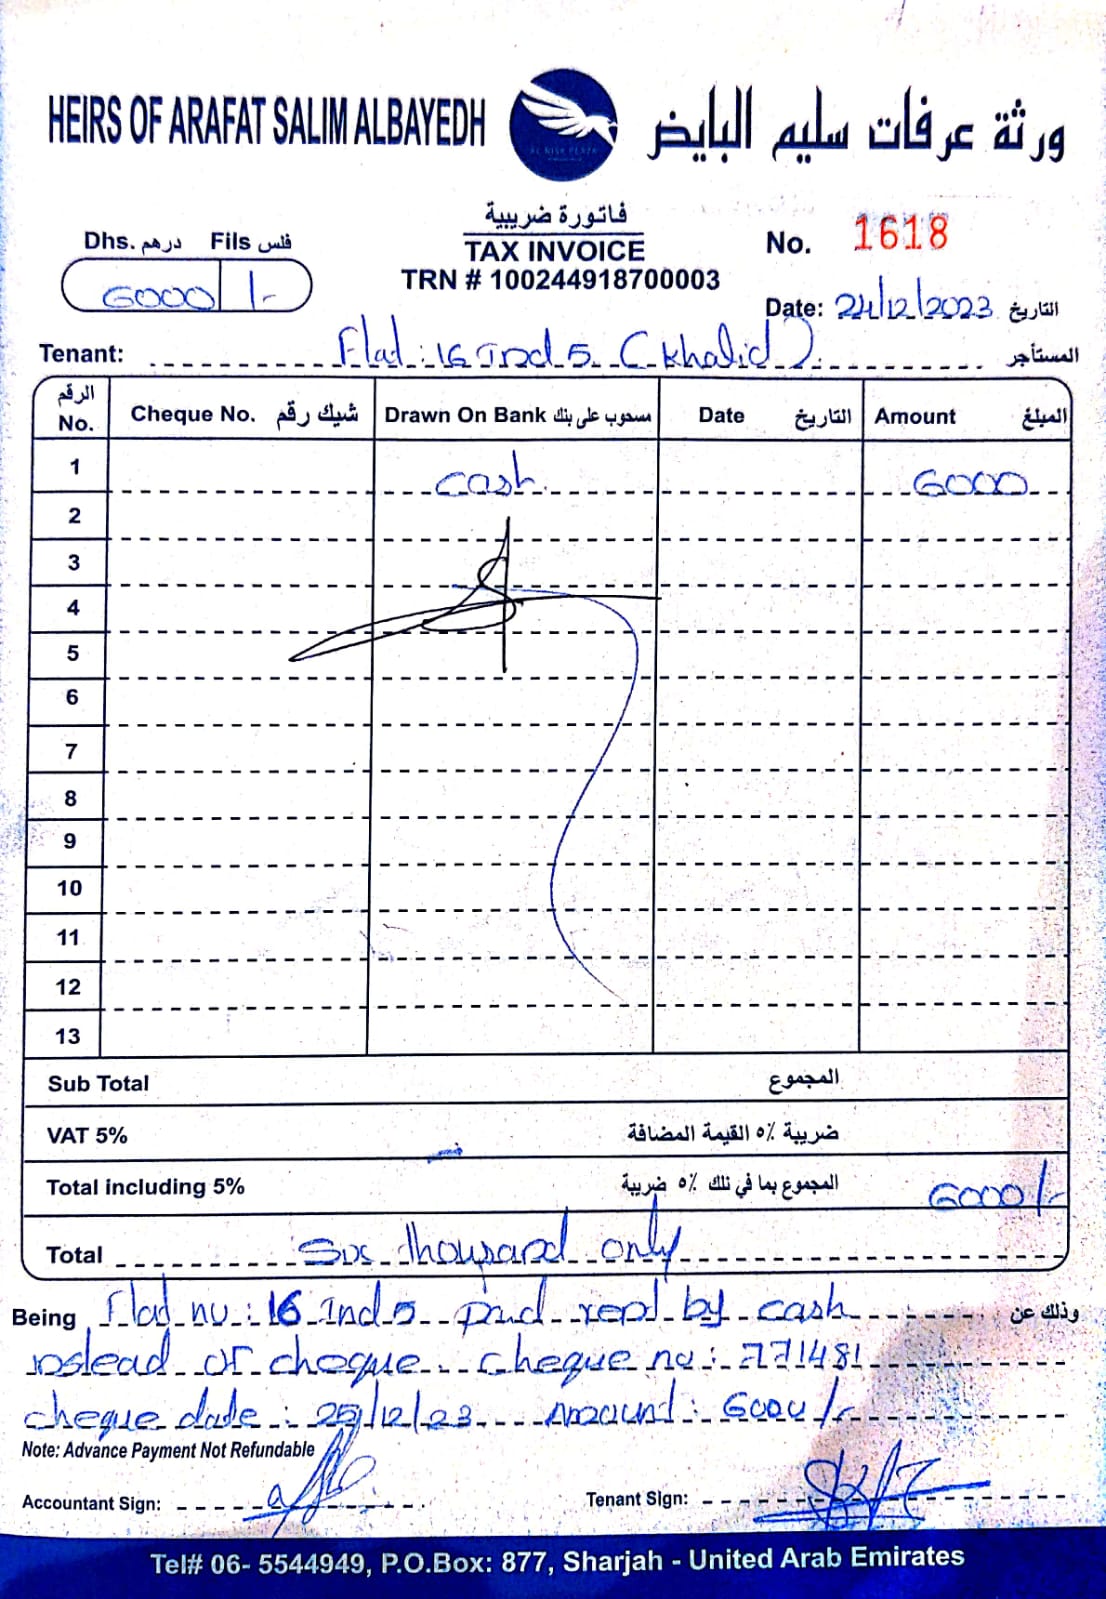 HEIRS OF ARAFAT SALIM ALBAYEDH
ورثة عرفات سليم البايض
فاتورة ضريبية
TAX INVOICE
TRN # 100244918700003
Dhs. درهم Fils فلس
6000 /-
No. 1618
Date: 24/12/2023 التاريخ
Tenant: Flat : 16 Ind 5 (Khalid) المستأجر
الرقم No. Cheque No. شيك رقم Drawn On Bank مسحوب على بنك Date التاريخ Amount المبلغ
1 cash 6000
2
3
4
5
6
7
8
9
10
11
12
13
Sub Total المجموع
VAT 5% ضريبة ٥% القيمة المضافة
Total including 5% المجموع بما في تلك ٥% ضريبة 6000/-
Total Six thousand only
Being Flat no : 16 Ind 5 paid rent by cash وذلك عن
instead of cheque cheque no : 771481
cheque date : 25/12/23 Amount : 6000/-
Note: Advance Payment Not Refundable
Accountant Sign: Tenant Sign:
Tel# 06- 5544949, P.O.Box: 877, Sharjah - United Arab Emirates